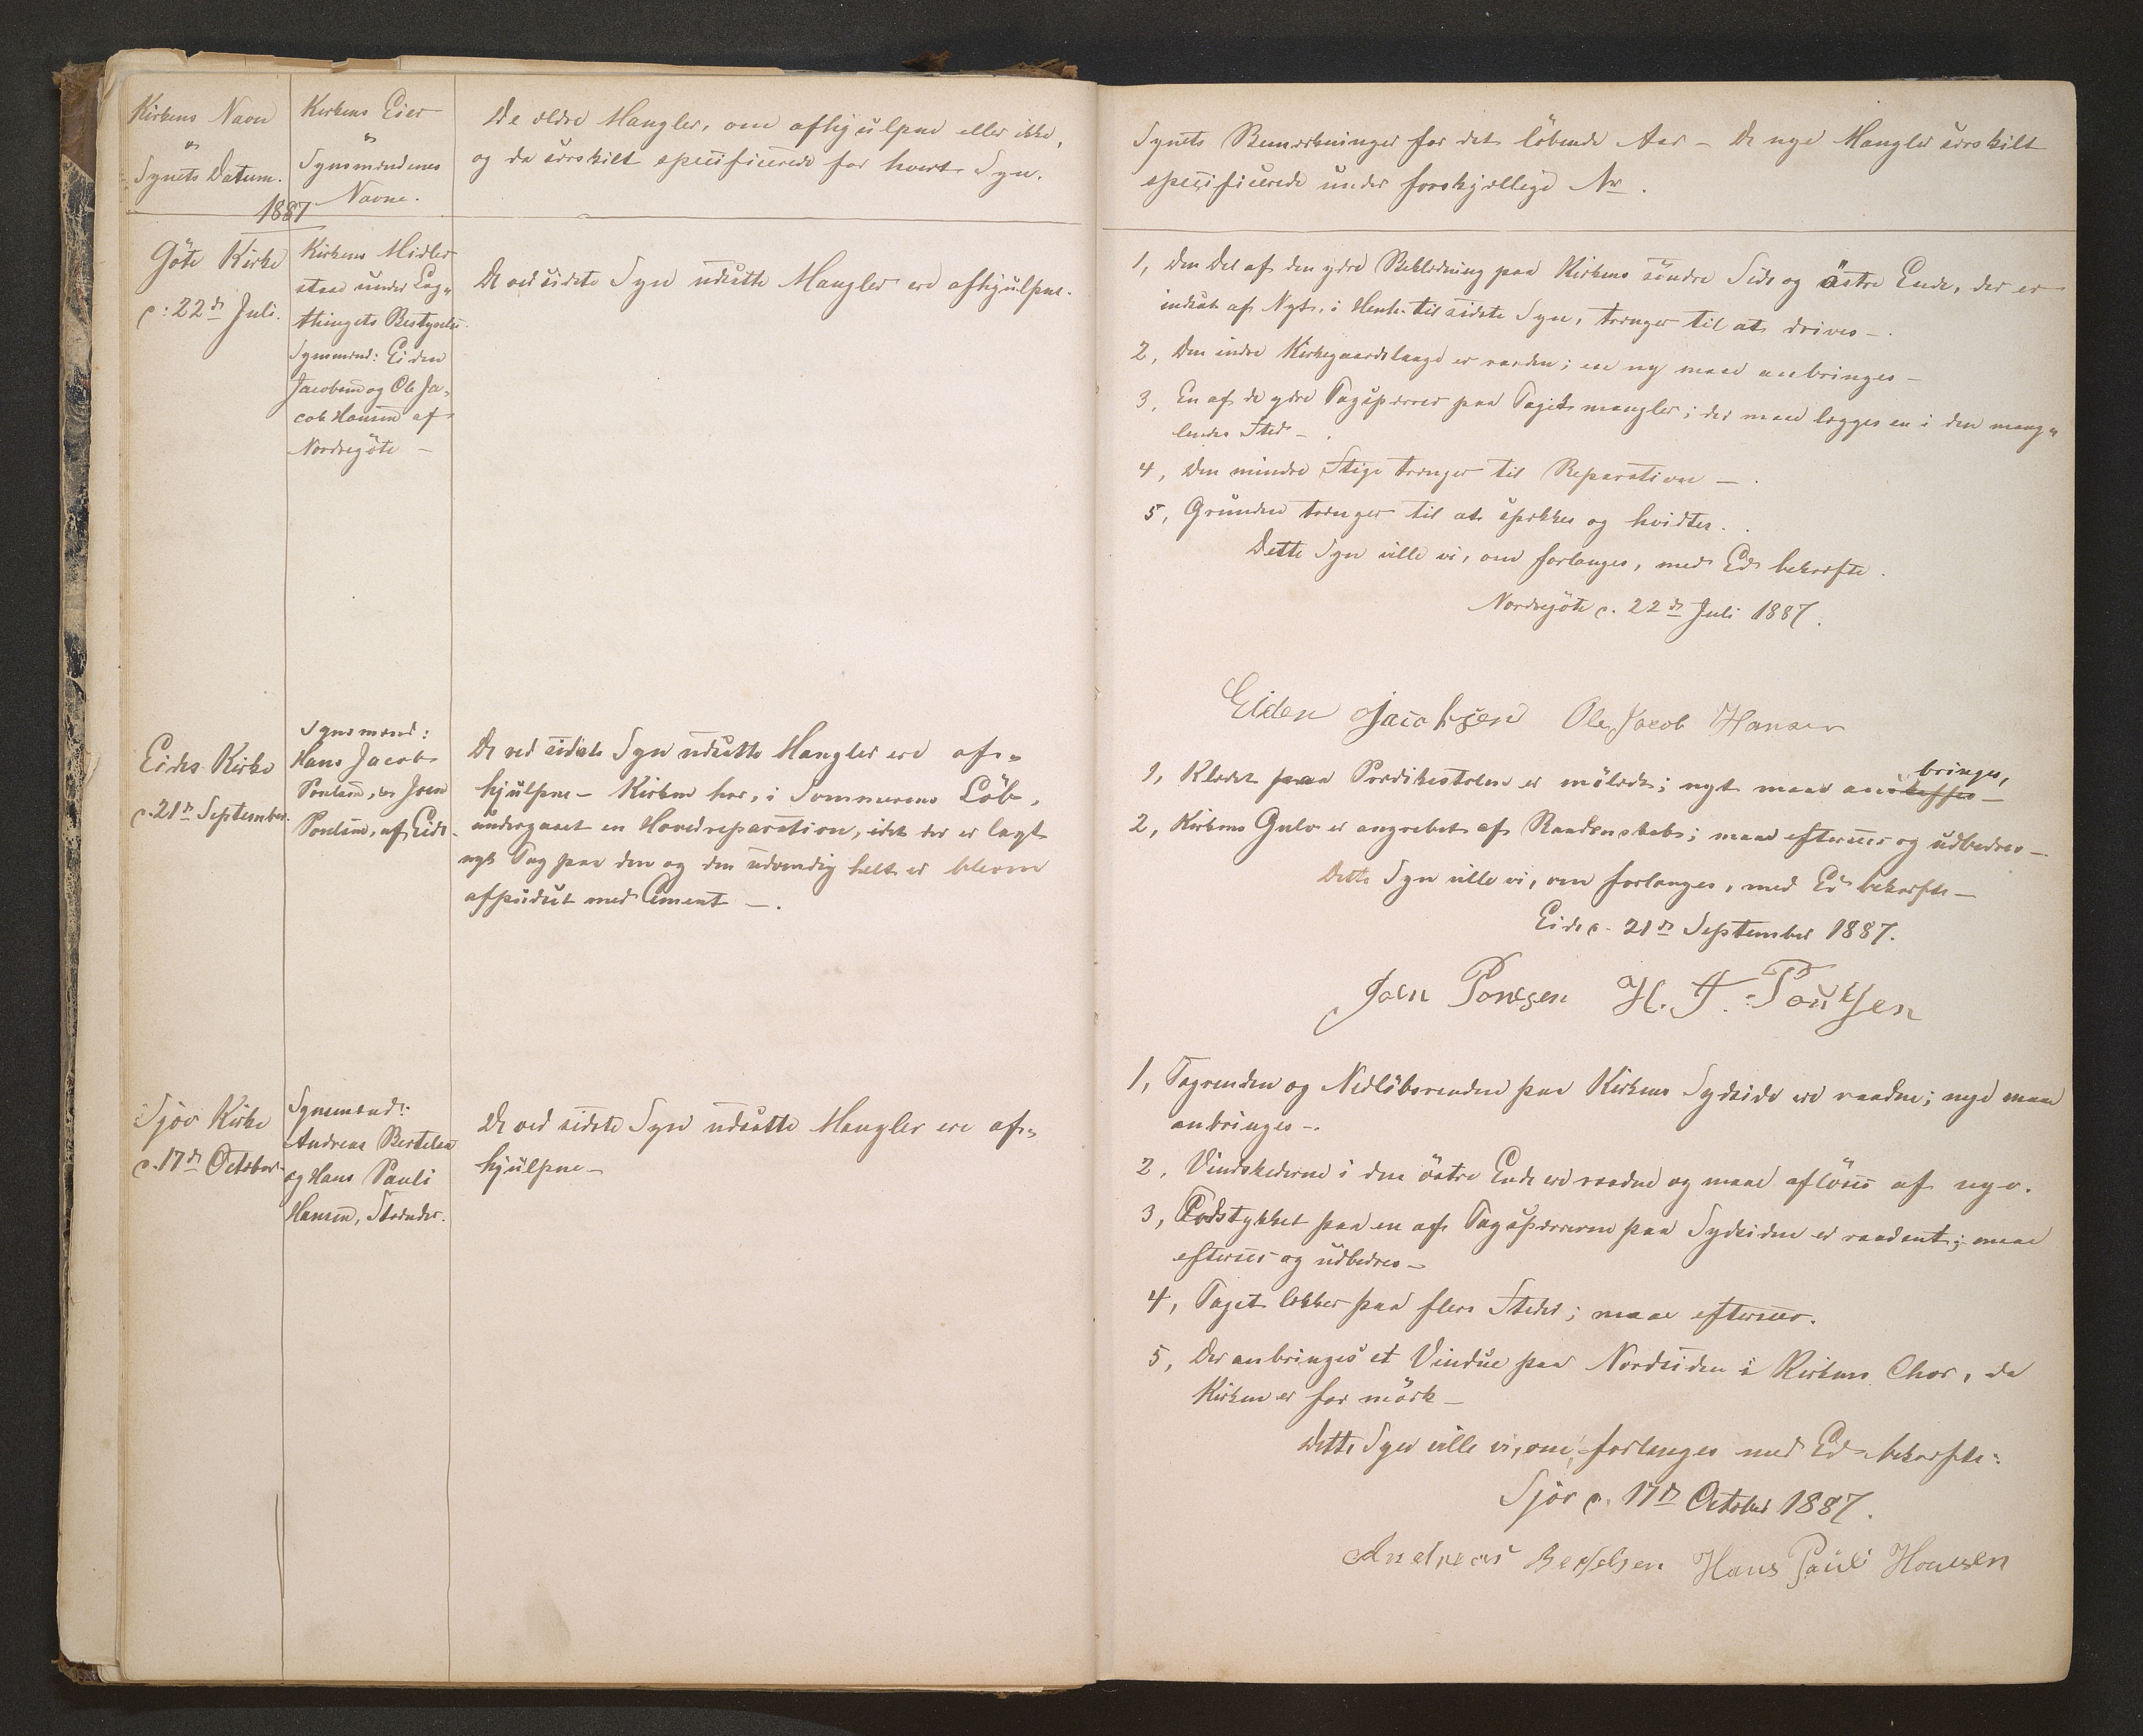 Kirkens Navn
og
Synets Datum.
1887
Kirkens Eier
og
Synsmændenes
Navne.
De ældre Mangler, om afhjülpne eller ikke,
og da særskilt specificerede for hvert Syn.
Göte Kirke
d: 22de Juli.
Kirkens Midler
staae under Lag„
thingets Bestyrelse.
Synsmænd: Eiden
Jacobsen og Ole Ja„
cob Hansen af
Nordregöte –
De ved sidste Syn udsatte Mangler ere afhjülpne.
Eides Kirke
d. 21de September.
Synsmænd:
Hans Jacob
Poulsen, og Joen
Poulsen, af Eide.
De ved sidste Syn udsatte Mangler ere af„
hjülpne – Kirken har, i Sommerens Löb,
undergaaet en Hovedreparation, idet der er lagt
nyt Tag paa den og den udvendig helt er bleven
afpudset med Cement –.
Sjöv Kirke
d. 17de October.
Synsmænd:
Andreas Bertelsen
og Hans Pauli
Hansen, Strænder.
De ved sidste Syn udsatte Mangler ere af„
hjülpne –
Synets Bemærkninger for det löbende Aar – De nye Mangler særskilt
specificerede under forskjællige Nr.
1, Den Del af den ydre Beklædning paa Kirkens söndre Side og östre Ende, der er
indsat af Nyt, i Henh. til sidste Syn, trænger til at drives –.
2, Den indre Kirkegaardslaage er raaden; en ny maae anbringes –
3, En af de ydre Tagsperrer paa Taget mangler; der maae lægges en i den mang„
lendes Sted –.
4, Den mindre Stige trænger til Reparation –.
5, Grunden trænger til at spækkes og hvidtes..
Dette Syn ville vi, om forlanges, med Ed bekræfte.
Nordregöte d. 22de Juli 1887.
Eiden Jacobsen Ole Jacob Hansen
1, Klædet paa Prædikestolen er mölædt; nyt maae anskaffes bringes, –
2, Kirkens Gulv er angrebet af Raaddenskab; maae eftersees og udbedres –
Dette Syn ville vi, om forlanges, med Ed bekræfte –
Eide d. 21de September 1887.
Joen Poulsen H. J. Poulsen
1, Tagrenden og Nedlöbsrenden paa Kirkens Sydside ere raadne; nye maae
anbringes –.
2, Vindskederne i den östre Ende ere raadne og maae aflöses af nye.
3, Fodstykket paa en af Tagsperrerne paa Sydsiden er raadent; maae
eftersees og udbedres –
4, Taget lækker paa flere Steder; maae eftersees.
5, Der anbringes et Vindue paa Nordsiden i Kirkens Chor, da
Kirken er for mörk –
Dette Syn ville vi, om forlanges med Ed bekræfte:
Sjöv d. 17de October 1887.
Andreas Bertelsen Hans Pauli Hansen